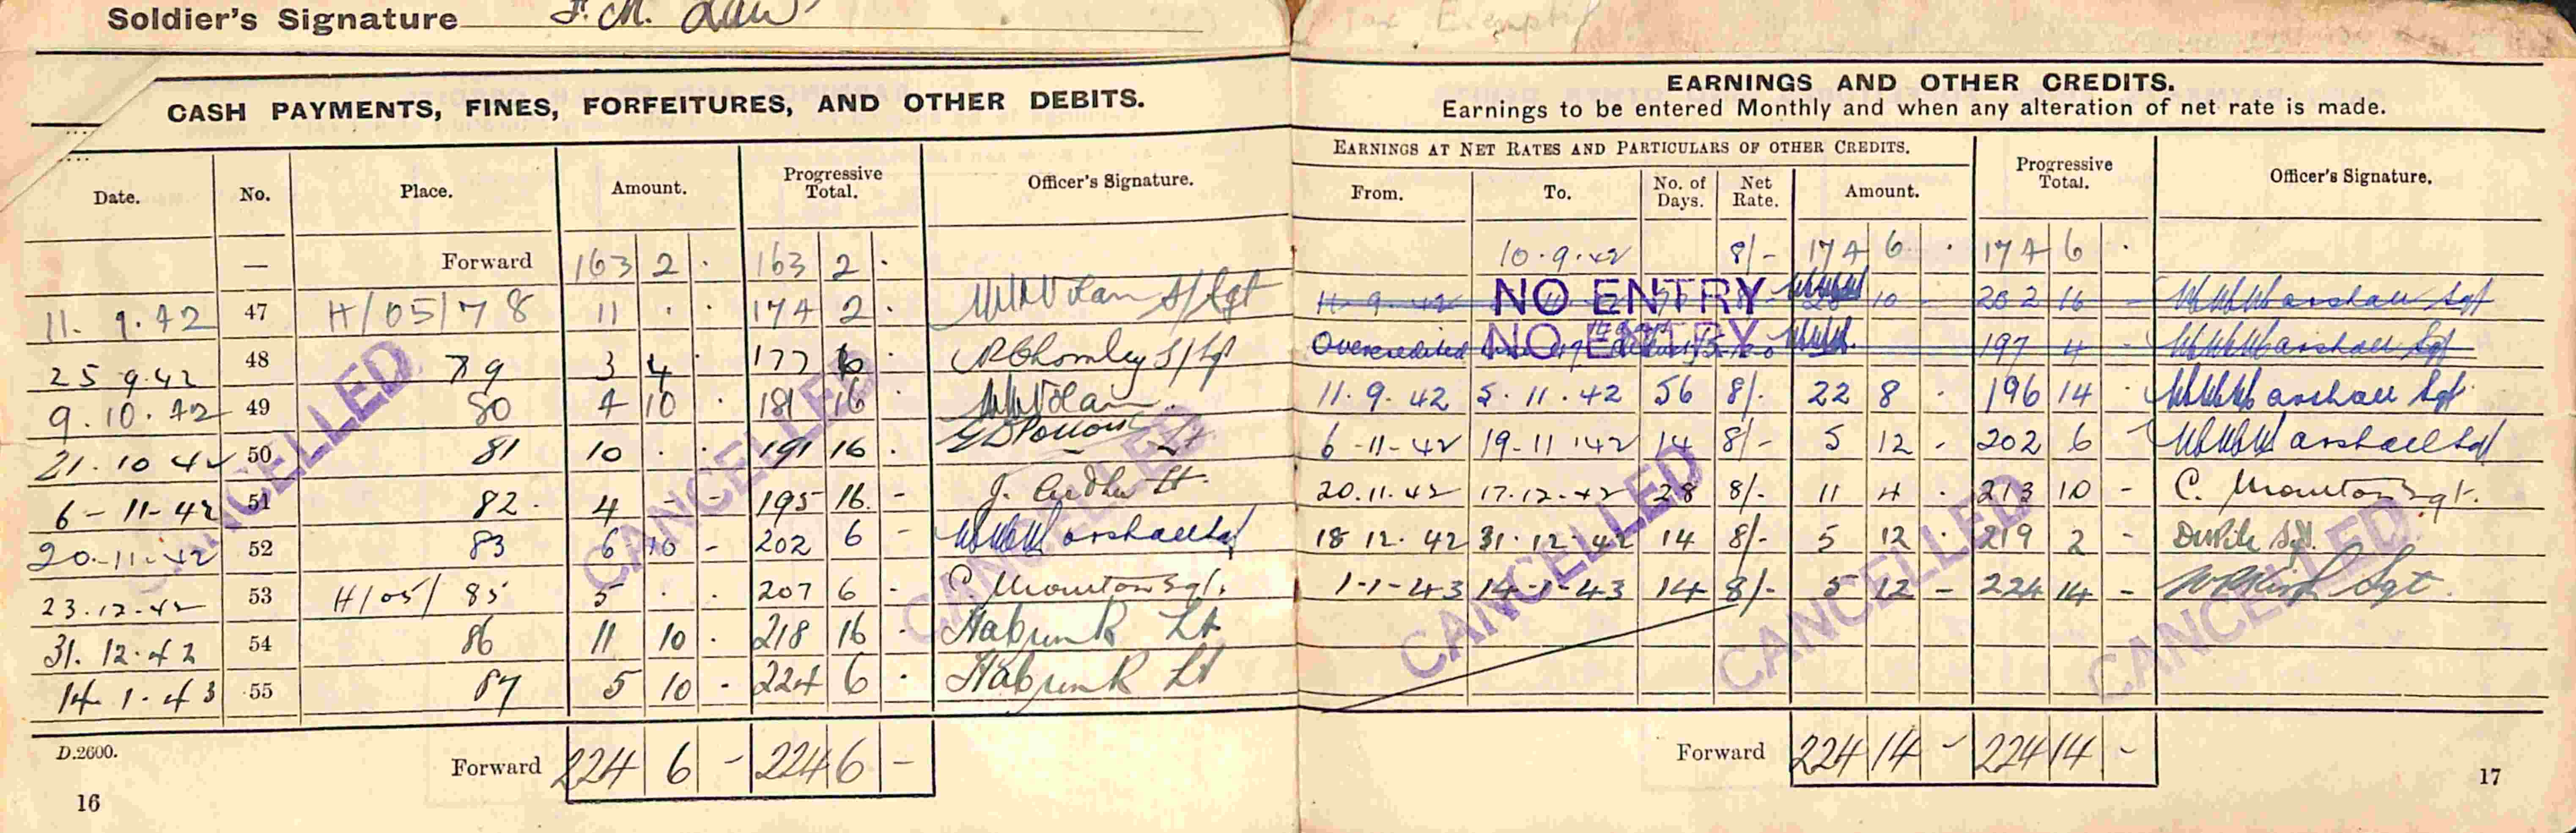 Soldier's Signature F. M. Law
Tax Exempt
CASH PAYMENTS, FINES, FORFEITURES, AND OTHER DEBITS.
Date. No. Place. Amount. Progressive Total. Officer's Signature.
— Forward 163 2 · 163 2 ·
11. 9. 42 47 H/05/78 11 · · 174 2 · S/Sgt
25 9.42 48 79 3 4 · 177 6 · S/Sgt
9. 10. 42 49 80 4 10 · 181 16 ·
21. 10 42 50 81 10 · · 191 16 · Lt
6 - 11- 42 51 82 · 4 - - 195 16 - J. Lt.
20.-11-.42 52 83 6 10 - 202 6 - Marshall Sgt
23.12.42 53 H/05/ 85 5 · · 207 6 - C. Mouton Sgt.
31. 12.42 54 86 11 10 · 218 16 · Lt
14. 1. 43 55 87 5 10 - 224 6 · Lt
D.2600. Forward 224 6 - 224 6 -
16
CANCELLED CANCELLED CANCELLED
EARNINGS AND OTHER CREDITS.
Earnings to be entered Monthly and when any alteration of net rate is made.
EARNINGS AT NET RATES AND PARTICULARS OF OTHER CREDITS. Progressive Total. Officer's Signature.
From. To. No. of Days. Net Rate. Amount.
10.9.42 8/- 174 6 · 174 6 ·
11-9-42 NO ENTRY 10 - 202 16 - Marshall Sgt
Overcredited NO ENTRY 197 4 - Marshall Sgt
11. 9. 42 5. 11. 42 56 8/- 22 8 · 196 14 · Marshall Sgt
6 -11- 42 19-11-42 14 8/- 5 12 - 202 6 - Marshall Sgt
20.11.42 17.12.42 28 8/- 11 4 · 213 10 - C. Mouton Sgt.
18 12. 42 31.12.42 14 8/- 5 12 · 219 2 - Sgt.
1-1-43 14-1-43 14 8/- 5 12 - 224 14 - Sgt.
CANCELLED CANCELLED CANCELLED
Forward 224 14 - 224 14 -
17